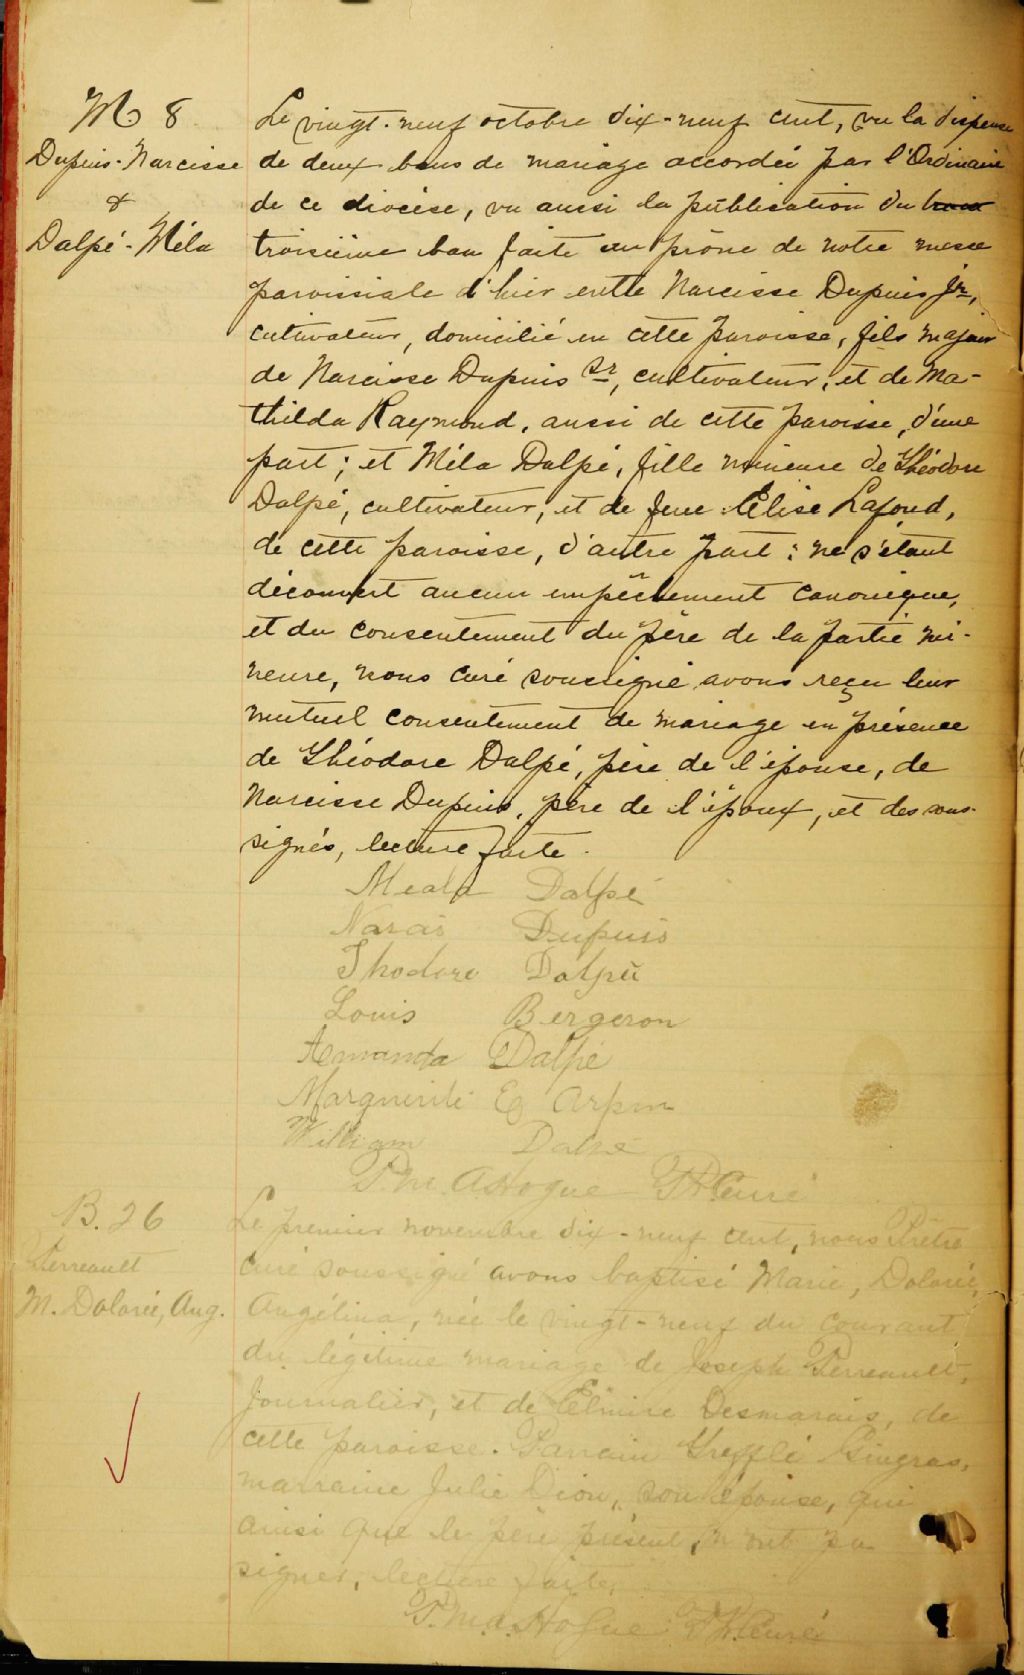 M. 8
Dupuis-Narcisse
&
Dalpé-Méla
Le vingt-neuf octobre dix-neuf cent, vu la dispense
de deux bans de mariage accordée par l'Ordinaire
de ce diocèse, vu aussi la publication du
troisième ban faite au prône de notre messe
paroissiale d'hier entre Narcisse Dupuis Jr,
cultivateur, domicilié en cette paroisse, fils majeur
de Narcisse Dupuis Sr, cultivateur, et de Ma-
thilda Raymond, aussi de cette paroisse, d'une
part; et Méla Dalpé, fille mineure de Théodore
Dalpé, cultivateur, et de feue Elise Lafond,
de cette paroisse, d'autre part: ne s'étant
découvert aucun empêchement canonique,
et du consentement du père de la partie mi-
neure, nous curé soussigné avons reçu leur
mutuel consentement de mariage en présence
de Théodore Dalpé, père de l'épouse, de
Narcisse Dupuis, père de l'époux, et des sous-
signés, lecture faite.
Meala Dalpé
Narsis Dupuis
Thodore Dalpé
Louis Bergeron
Armanda Dalpé
Marguerite E Arpin
William Dalpé
Ptre Curé
B. 26
Perreault
M. Dolorée, Ang.
Le premier novembre dix-neuf cent, nous Prêtre
curé soussigné avons baptisé Marie, Dolorée,
Angélina, née le vingt-neuf du courant
du légitime mariage de Joseph Perreault,
journalier, et de Elmire Desmarais, de
cette paroisse. Parrain Gingras,
marraine Julie Dion, son épouse, qui
ainsi que le père présent, n'ont pu
signer, lecture faite.
Ptre Curé